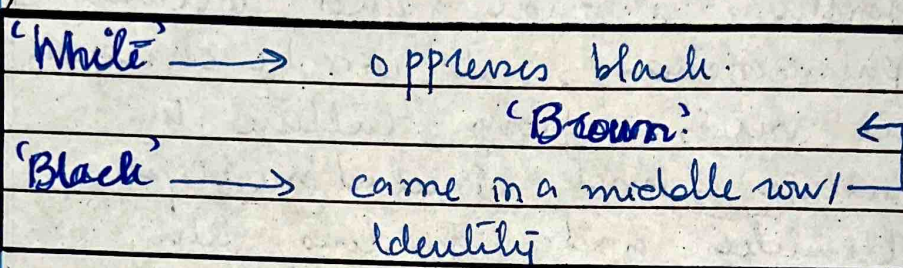 'White' → oppresses black.
'Brown' ←
'Black' → came in a middle row/
Identity